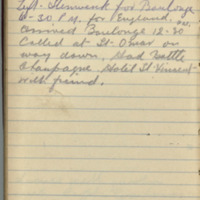 Left Steenwerck for Boulogne
6-30 P.M. for England.
Arrived Boulogne 12-30
Called at St-Omer on
way down. Had bottle
Champagne Hotel St Vincent
with friend.